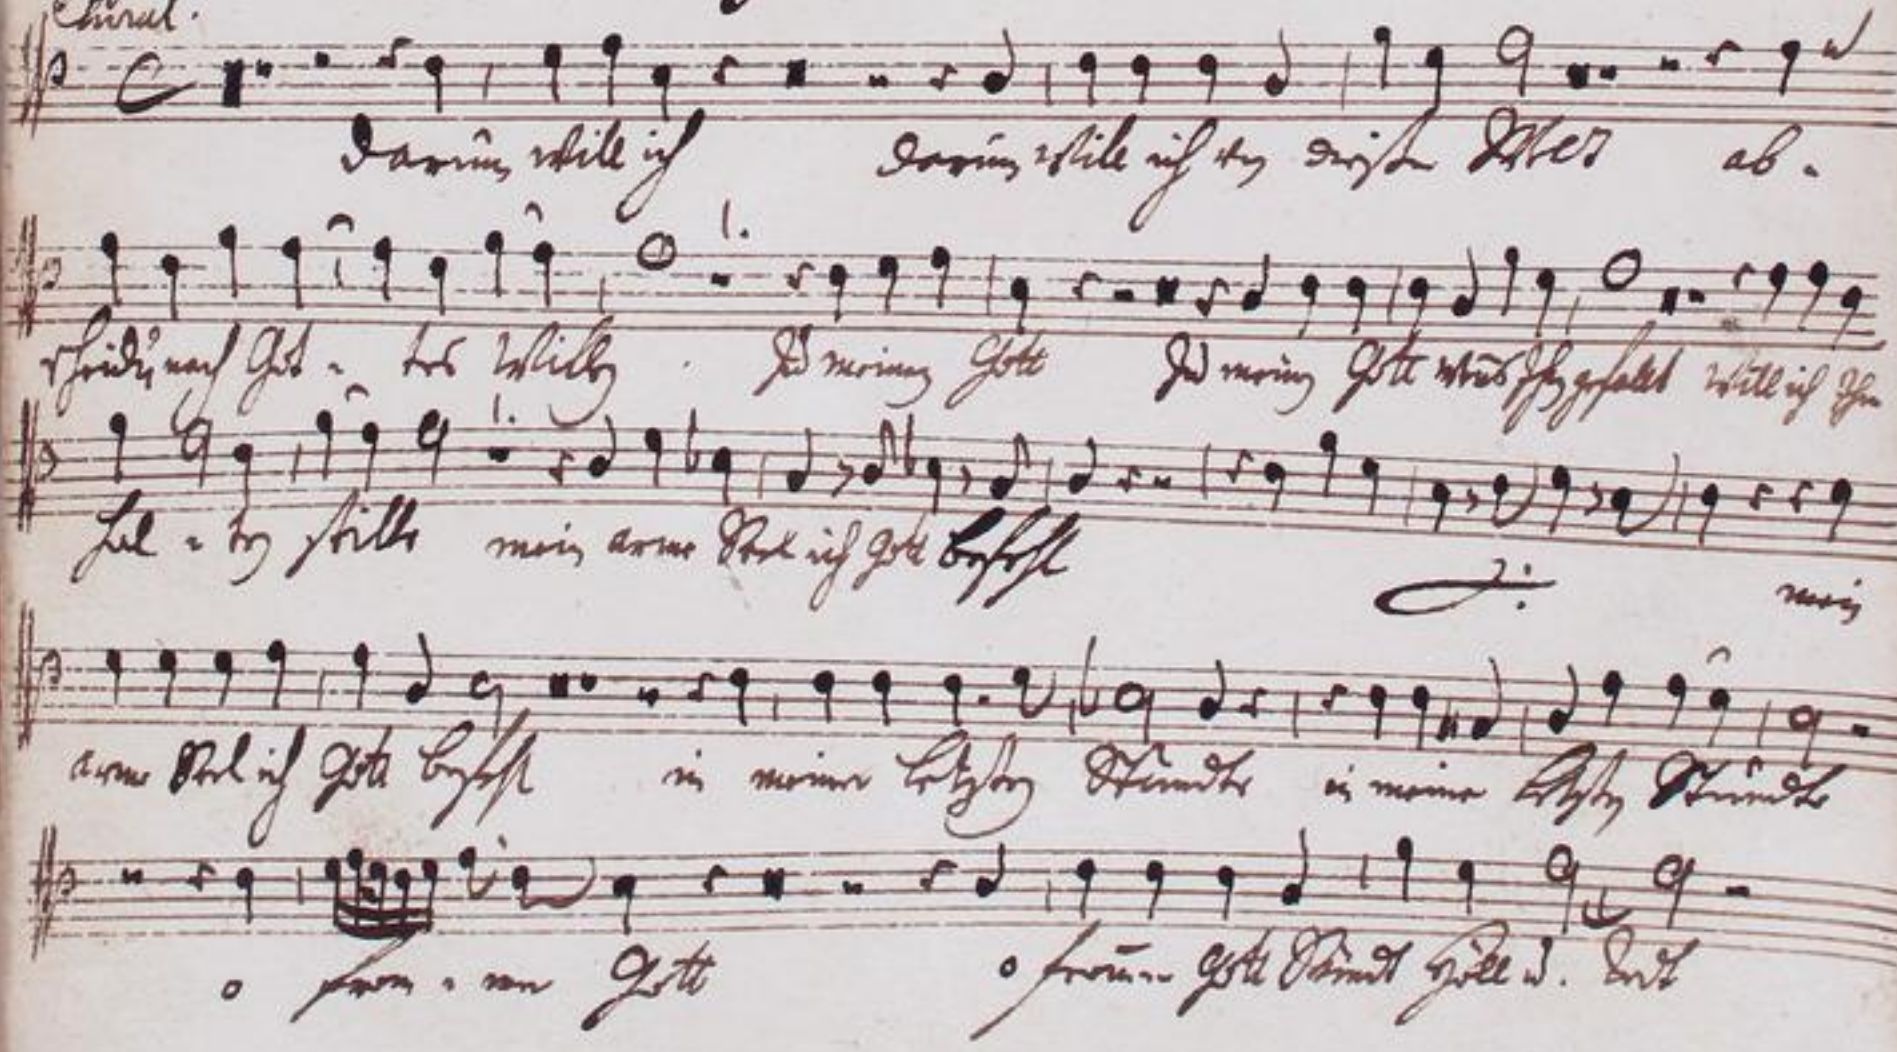 Choral.
Darum will ich darum will ich von dießer Welt ab-
scheiden nach Got - tes Willen. Zu meinem Gott Zu meinem Gott wens Ihm gefallt will ich Ihm
hal - ten stille mein arme Seel ich Gott befehl mein
arme Seel ich Gott befehl in meiner letzten Stundte in meiner letzten Stundte
o from - mer Gott o from̄er Gott Sündt Höll u. Todt